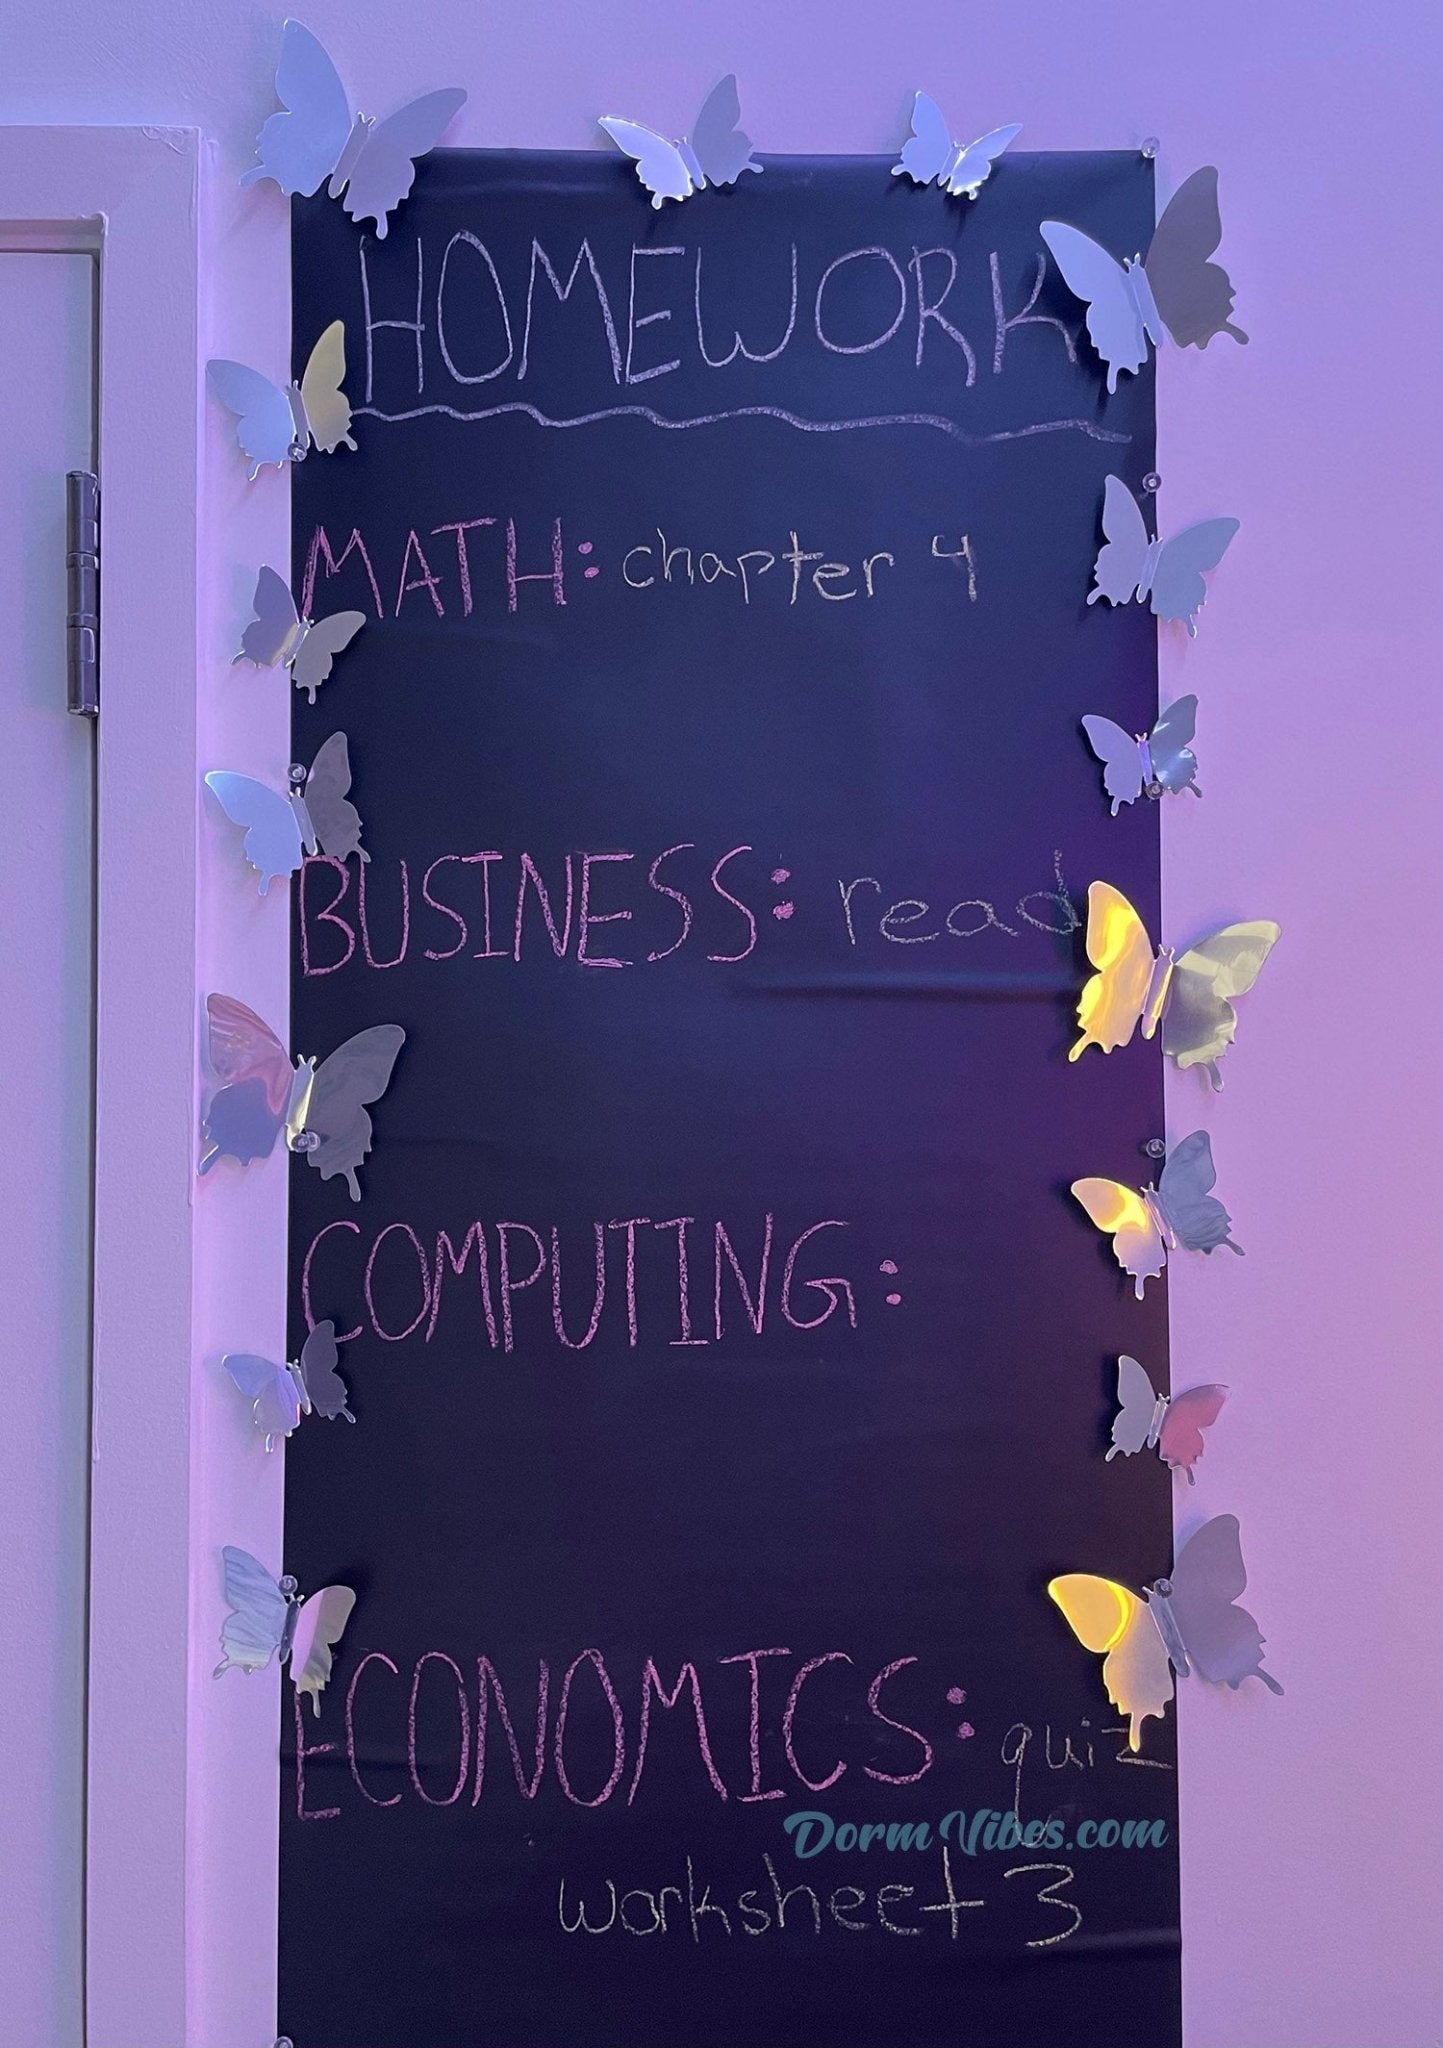 HOMEWORK
MATH: chapter 4
BUSINESS: read
COMPUTING:
ECONOMICS: quiz
DormVibes.com
worksheet 3